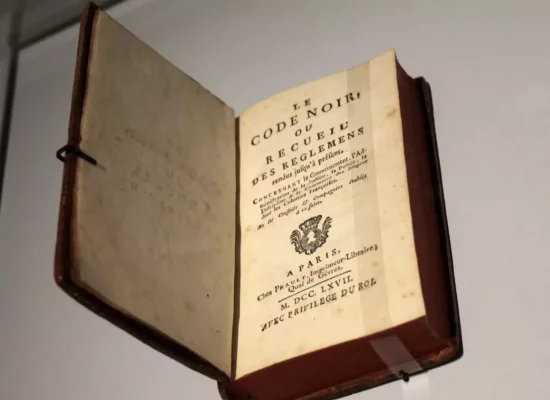 LE
CODE NOIR,
OU
RECUEIL
DES REGLEMENS
rendus jusqu'à présent.
CONCERNANT le Gouvernement, l'Ad-
ministration de la Justice, la Police, la
Discipline & le Commerce des
dans les Colonies Françoises.
Et les Conseils & Compagnies établis
à ce sujet.
A PARIS,
Chez PRAULT, Imprimeur-Libraire,
Quai de Gêvres.
M. DCC. LXVII.
AVEC PRIVILEGE DU ROI.